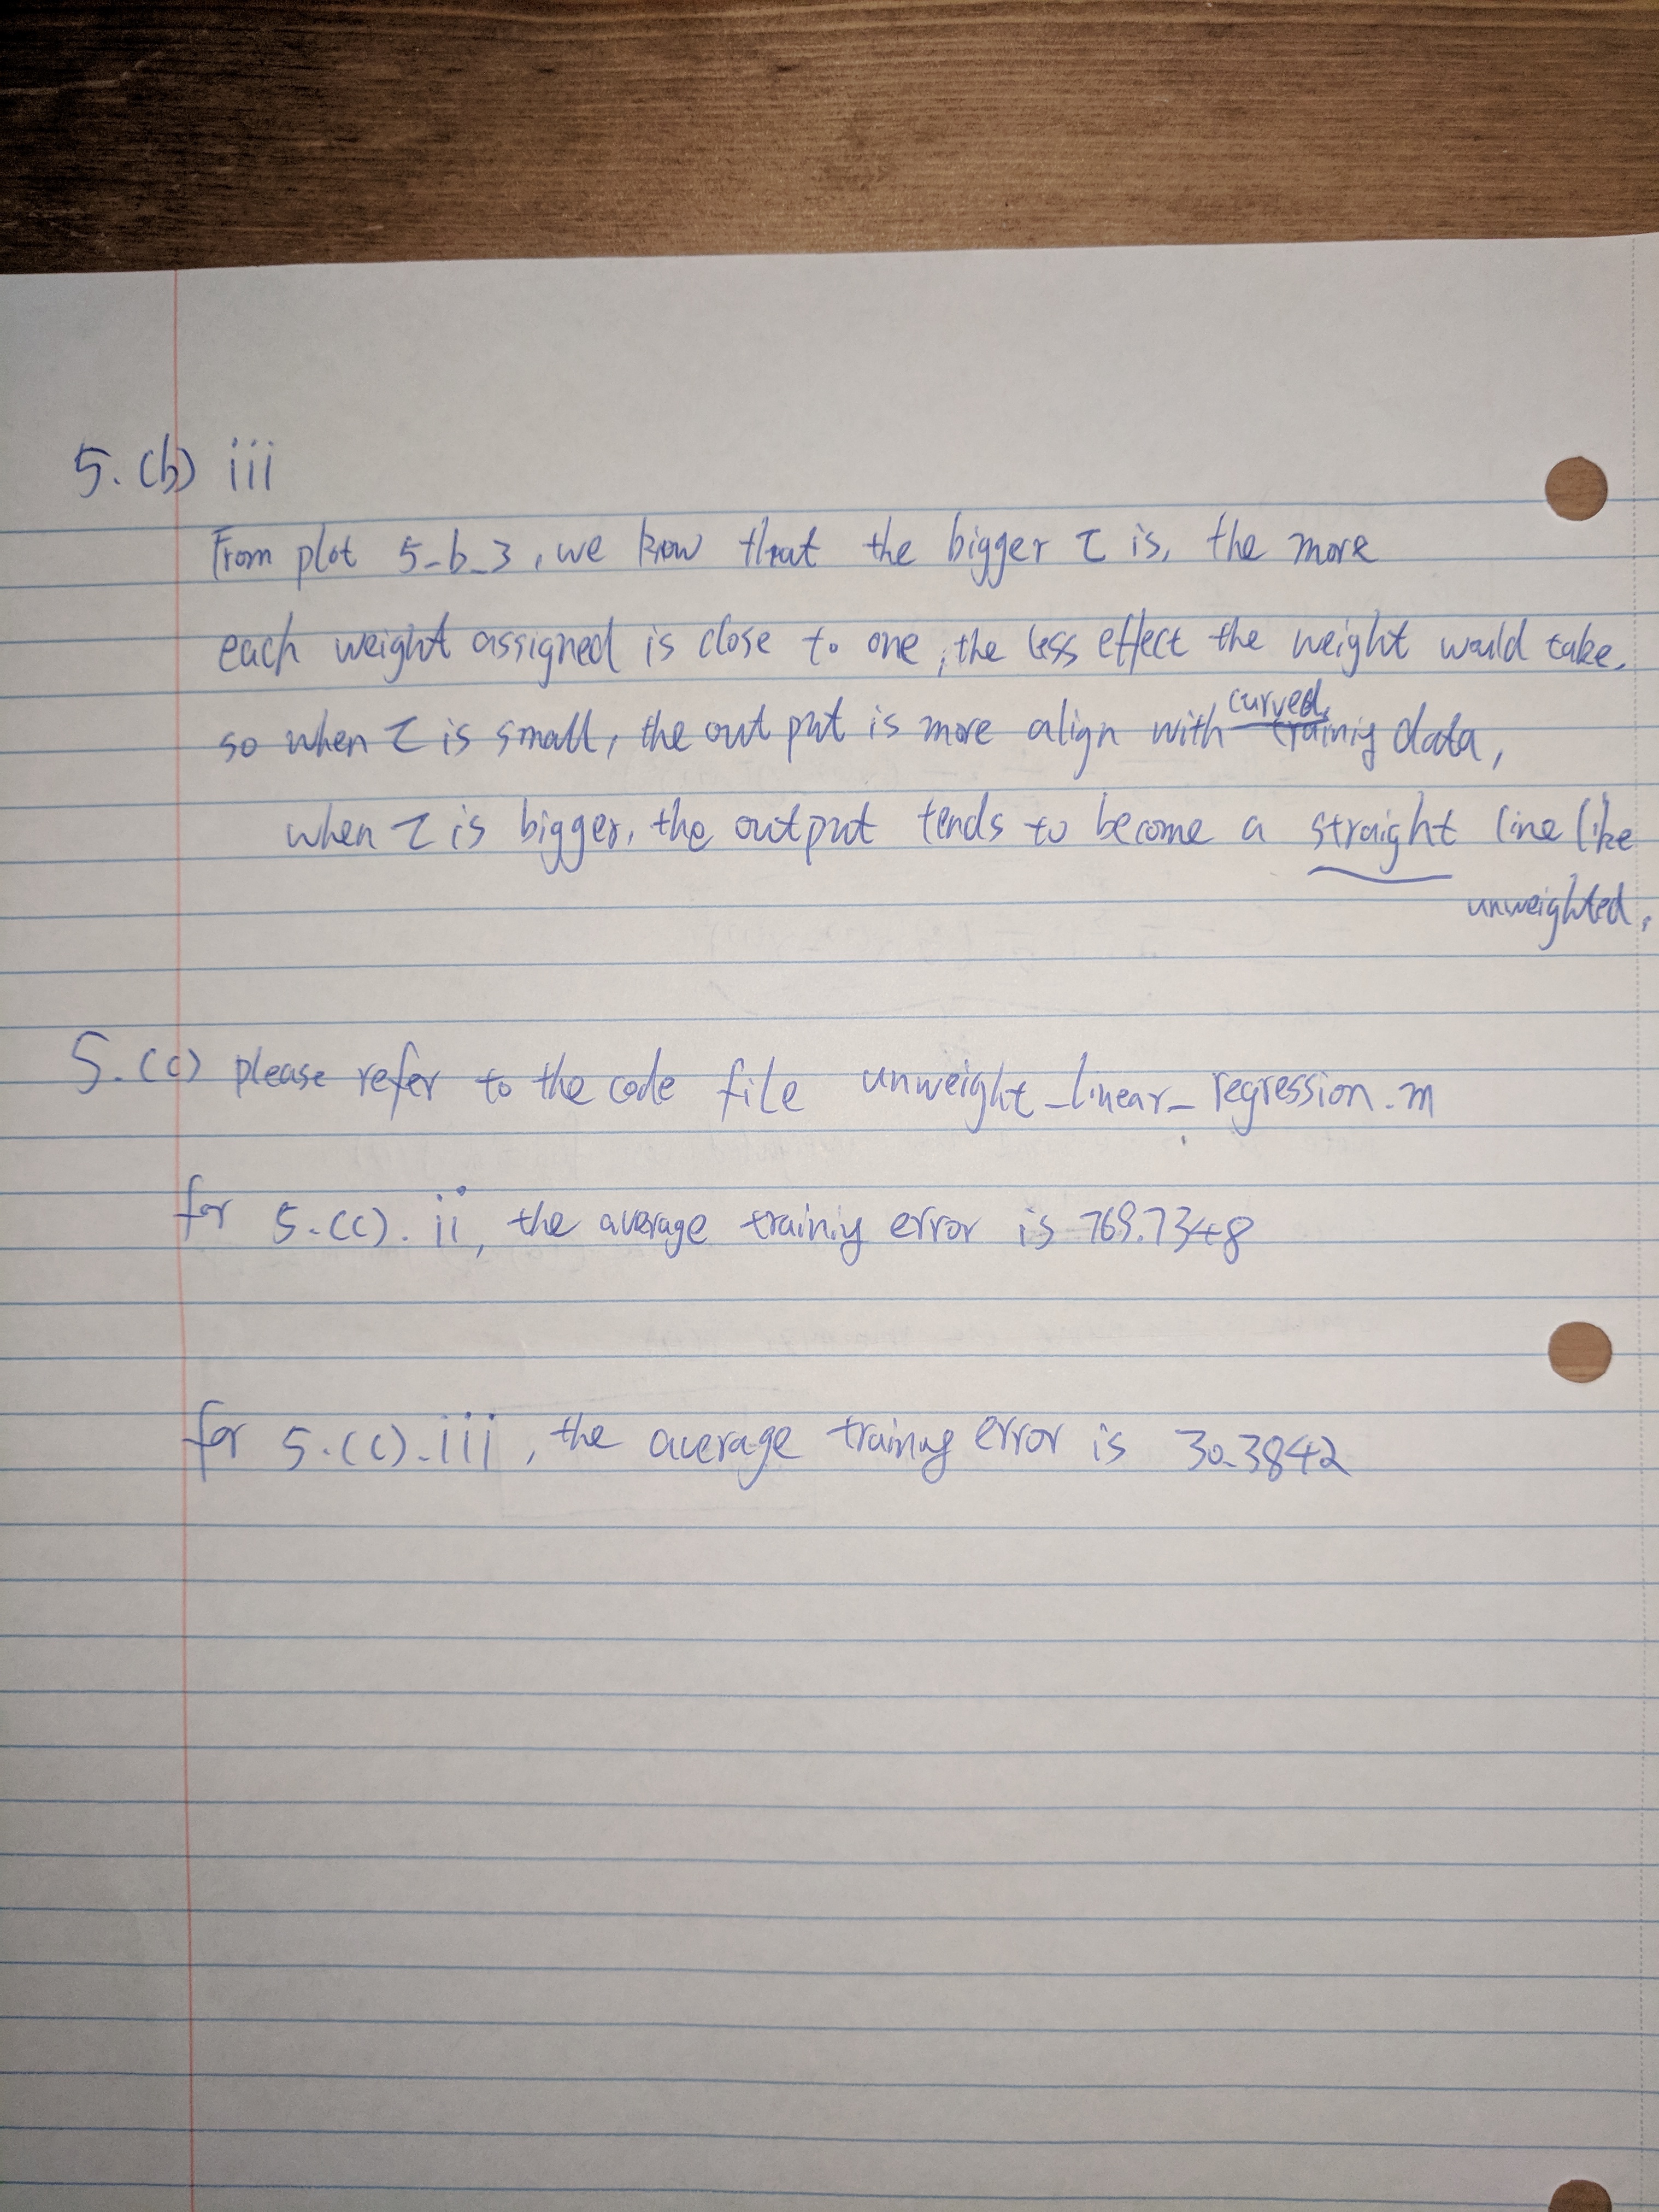 5. (b) iii
From plot 5_b_3, we know that the bigger τ is, the more
each weight assigned is close to one, the less effect the weight would take.
so when τ is small, the output is more align with curved training data,
when τ is bigger, the output tends to become a straight line like
unweighted.
5. (c) please refer to the code file unweight_linear_regression.m
for 5.(c).ii, the average training error is 769.7348
for 5.(c).iii, the average training error is 30.3842